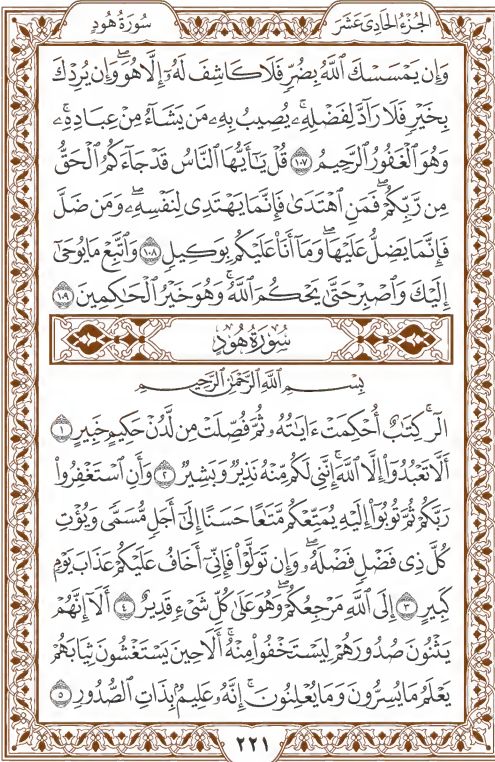 الجزء الحادي عشر
سورة هود
وَإِن يَمْسَسْكَ ٱللَّهُ بِضُرٍّ فَلَا كَاشِفَ لَهُۥٓ إِلَّا هُوَۖ وَإِن يُرِدْكَ
بِخَيْرٍ فَلَا رَآدَّ لِفَضْلِهِۦۚ يُصِيبُ بِهِۦ مَن يَشَآءُ مِنْ عِبَادِهِۦۚ
وَهُوَ ٱلْغَفُورُ ٱلرَّحِيمُ ١٠٧ قُلْ يَٰٓأَيُّهَا ٱلنَّاسُ قَدْ جَآءَكُمُ ٱلْحَقُّ
مِن رَّبِّكُمْۖ فَمَنِ ٱهْتَدَىٰ فَإِنَّمَا يَهْتَدِى لِنَفْسِهِۦۖ وَمَن ضَلَّ
فَإِنَّمَا يَضِلُّ عَلَيْهَاۖ وَمَآ أَنَا۠ عَلَيْكُم بِوَكِيلٍ ١٠٨ وَٱتَّبِعْ مَا يُوحَىٰٓ
إِلَيْكَ وَٱصْبِرْ حَتَّىٰ يَحْكُمَ ٱللَّهُۚ وَهُوَ خَيْرُ ٱلْحَٰكِمِينَ ١٠٩
سُورَةُ هُودٍ
بِسْمِ ٱللَّهِ ٱلرَّحْمَٰنِ ٱلرَّحِيمِ
الٓرۚ كِتَٰبٌ أُحْكِمَتْ ءَايَٰتُهُۥ ثُمَّ فُصِّلَتْ مِن لَّدُنْ حَكِيمٍ خَبِيرٍ ١
أَلَّا تَعْبُدُوٓا۟ إِلَّا ٱللَّهَۚ إِنَّنِى لَكُم مِّنْهُ نَذِيرٌ وَبَشِيرٌ ٢ وَأَنِ ٱسْتَغْفِرُوا۟
رَبَّكُمْ ثُمَّ تُوبُوٓا۟ إِلَيْهِ يُمَتِّعْكُم مَّتَٰعًا حَسَنًا إِلَىٰٓ أَجَلٍ مُّسَمًّى وَيُؤْتِ
كُلَّ ذِى فَضْلٍ فَضْلَهُۥۖ وَإِن تَوَلَّوْا۟ فَإِنِّىٓ أَخَافُ عَلَيْكُمْ عَذَابَ يَوْمٍ
كَبِيرٍ ٣ إِلَى ٱللَّهِ مَرْجِعُكُمْۖ وَهُوَ عَلَىٰ كُلِّ شَىْءٍ قَدِيرٌ ٤ أَلَآ إِنَّهُمْ
يَثْنُونَ صُدُورَهُمْ لِيَسْتَخْفُوا۟ مِنْهُۚ أَلَا حِينَ يَسْتَغْشُونَ ثِيَابَهُمْ
يَعْلَمُ مَا يُسِرُّونَ وَمَا يُعْلِنُونَۚ إِنَّهُۥ عَلِيمٌۢ بِذَاتِ ٱلصُّدُورِ ٥
٢٢١